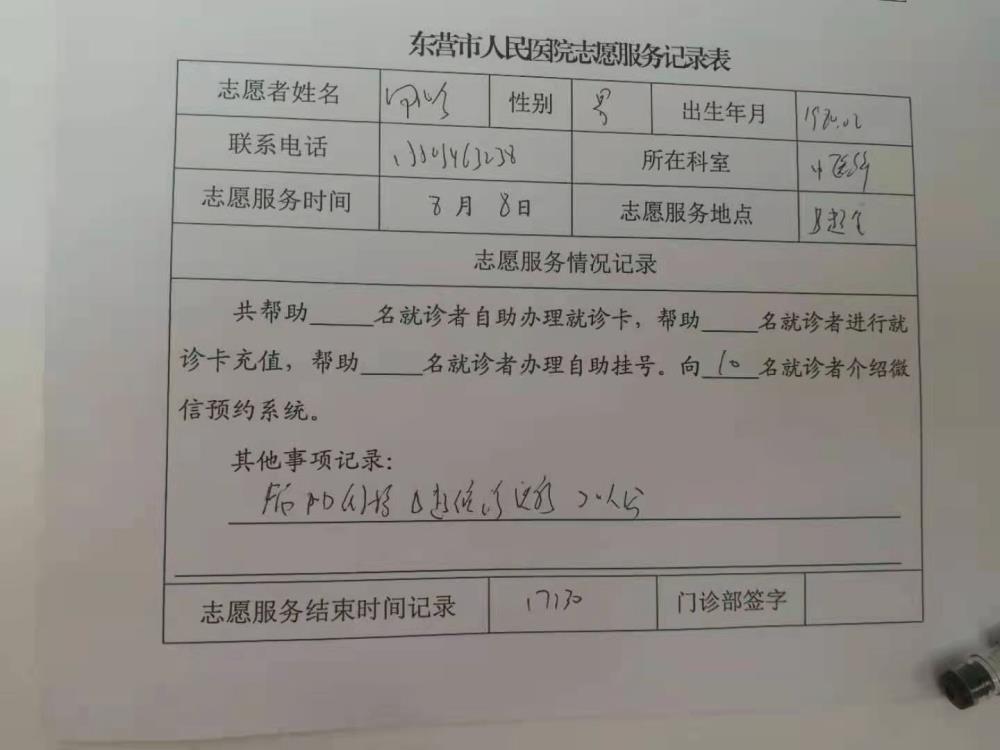 东营市人民医院志愿服务记录表
志愿者姓名 性别 男 出生年月 1980.02
联系电话 所在科室 中医科
志愿服务时间 8月 8日 志愿服务地点
志愿服务情况记录
共帮助_____名就诊者自助办理就诊卡，帮助_____名就诊者进行就
诊卡充值，帮助_____名就诊者办理自助挂号。向 10 名就诊者介绍微
信预约系统。
其他事项记录：
志愿服务结束时间记录 17:30 门诊部签字